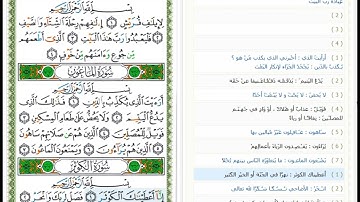 بِسْمِ اللَّهِ الرَّحْمَٰنِ الرَّحِيمِ
لِإِيلَافِ قُرَيْشٍ ۝ إِيلَافِهِمْ رِحْلَةَ الشِّتَاءِ وَالصَّيْفِ ۝
فَلْيَعْبُدُوا رَبَّ هَٰذَا الْبَيْتِ ۝ الَّذِي أَطْعَمَهُم
مِّن جُوعٍ وَآمَنَهُم مِّنْ خَوْفٍ ۝
سُورَةُ الْمَاعُونِ
بِسْمِ اللَّهِ الرَّحْمَٰنِ الرَّحِيمِ
أَرَأَيْتَ الَّذِي يُكَذِّبُ بِالدِّينِ ۝ فَذَٰلِكَ الَّذِي
يَدُعُّ الْيَتِيمَ ۝ وَلَا يَحُضُّ عَلَىٰ طَعَامِ الْمِسْكِينِ ۝
فَوَيْلٌ لِّلْمُصَلِّينَ ۝ الَّذِينَ هُمْ عَن صَلَاتِهِمْ سَاهُونَ ۝
الَّذِينَ هُمْ يُرَاءُونَ ۝ وَيَمْنَعُونَ الْمَاعُونَ ۝
سُورَةُ الْكَوْثَرِ
بِسْمِ اللَّهِ الرَّحْمَٰنِ الرَّحِيمِ
إِنَّا أَعْطَيْنَاكَ الْكَوْثَرَ ۝ فَصَلِّ لِرَبِّكَ وَانْحَرْ ۝
عبادة رب البيت
[1] أرأيت الذي : أخبرني الذي يكذب من هو ؟
يكذب بالدين : يجحد الجزاء لإنكار البعث
[2] يدع اليتيم : يدفعه دفعا عنيفا عن حقه
[3] لا يحض : لا يحث ولا يبعث أحدا
[4] فويل : عذاب أو هلاك ، أو واد في جهنم
[5] ساهون : غافلون غير مبالين بها
[6] يراءون : يقصدون الرياء بأعمالهم
[7]
[1] أعطيناك الكوثر : نهرا في الجنة أو الخير الكثير
[2]